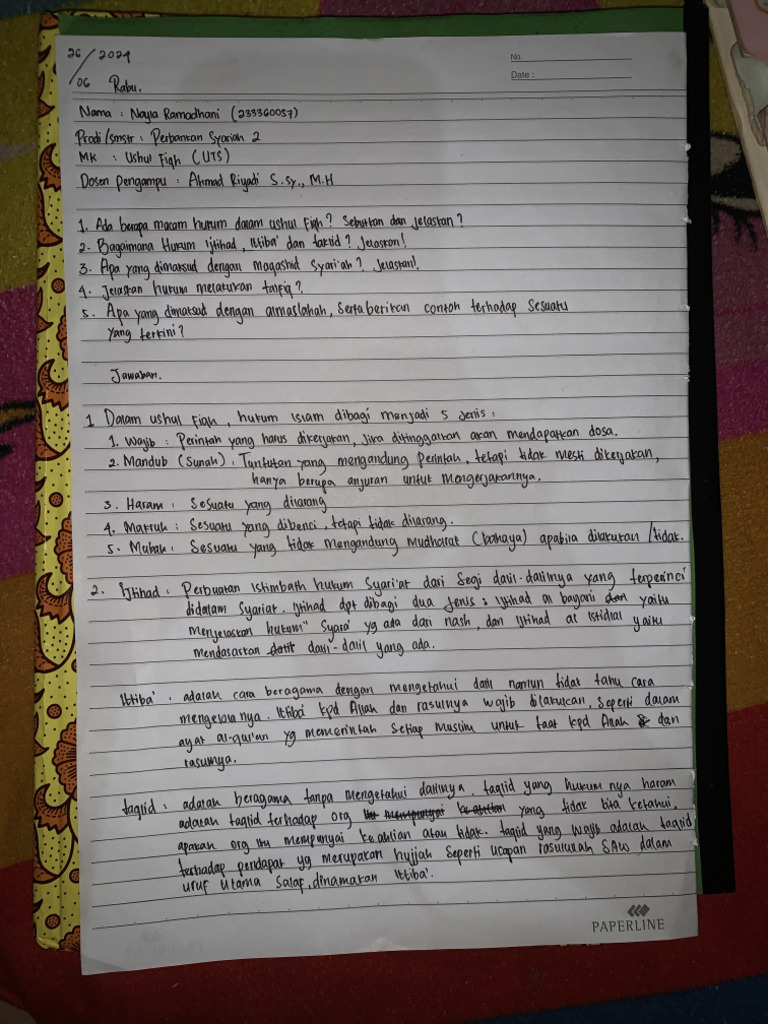 26/06 2024
Rabu.
No.
Date :
Nama : Nayla Ramadhani (233360057)
Prodi/smstr : Perbankan Syariah 2
MK : Ushul Fiqh (UTS)
Dosen Pengampu : Ahmad Riyadi S.Sy., M.H
1. Ada berapa macam hukum dalam ushul Fiqh? Sebutkan dan jelaskan?
2. Bagaimana Hukum Ijtihad, Ittiba' dan taklid? Jelaskan!
3. Apa yang dimaksud dengan maqashid Syari'ah? Jelaskan!.
4. Jelaskan hukum melakukan talfiq?
5. Apa yang dimaksud dengan almaslahah, Serta berikan contoh terhadap Sesuatu
yang terkini?
Jawaban.
1 Dalam ushul Fiqh, hukum islam dibagi menjadi 5 jenis :
1. Wajib : Perintah yang harus dikerjakan, jika ditinggalkan akan mendapatkan dosa.
2. Mandub (Sunah) : Tuntutan yang mengandung Perintah, tetapi tidak mesti dikerjakan,
hanya berupa anjuran untuk mengerjakannya.
3. Haram : Sesuatu yang dilarang
4. Makruh : Sesuatu yang dibenci, tetapi tidak dilarang.
5. Mubah : Sesuatu yang tidak mengandung Mudharat (bahaya) apabila dilakukan /tidak.
2. Ijtihad : Perbuatan Istimbath hukum Syari'at dari Segi dalil-dalilnya yang terperinci
didalam Syariat. Ijtihad dpt dibagi dua Jenis : Ijtihad al bayani yaitu
Menjelaskan hukum" Syara' yg ada dari nash, dan Ijtihad al istidlal yaitu
Mendasarkan dalil-dalil yang ada.
Ittiba' : adalah cara beragama dengan mengetahui dalil namun tidak tahu cara
mengelolanya. Ittiba' kpd Allah dan rasulnya wajib dilakukan, Seperti dalam
ayat al-qur'an yg memerintah Setiap Muslim untuk taat kpd Allah dan
rasulnya.
taqlid : adalah beragama tanpa mengetahui dalilnya. taqlid yang hukum nya haram
adalah taqlid terhadap org yang tidak kita ketahui.
apakah org itu mempunyai keahlian atau tidak. taqlid yang wajib adalah taqlid
terhadap pendapat yg merupakan hujjah seperti ucapan rasulullah SAW dalam
uruf Ulama Salaf, dinamakan Ittiba'.
PAPERLINE